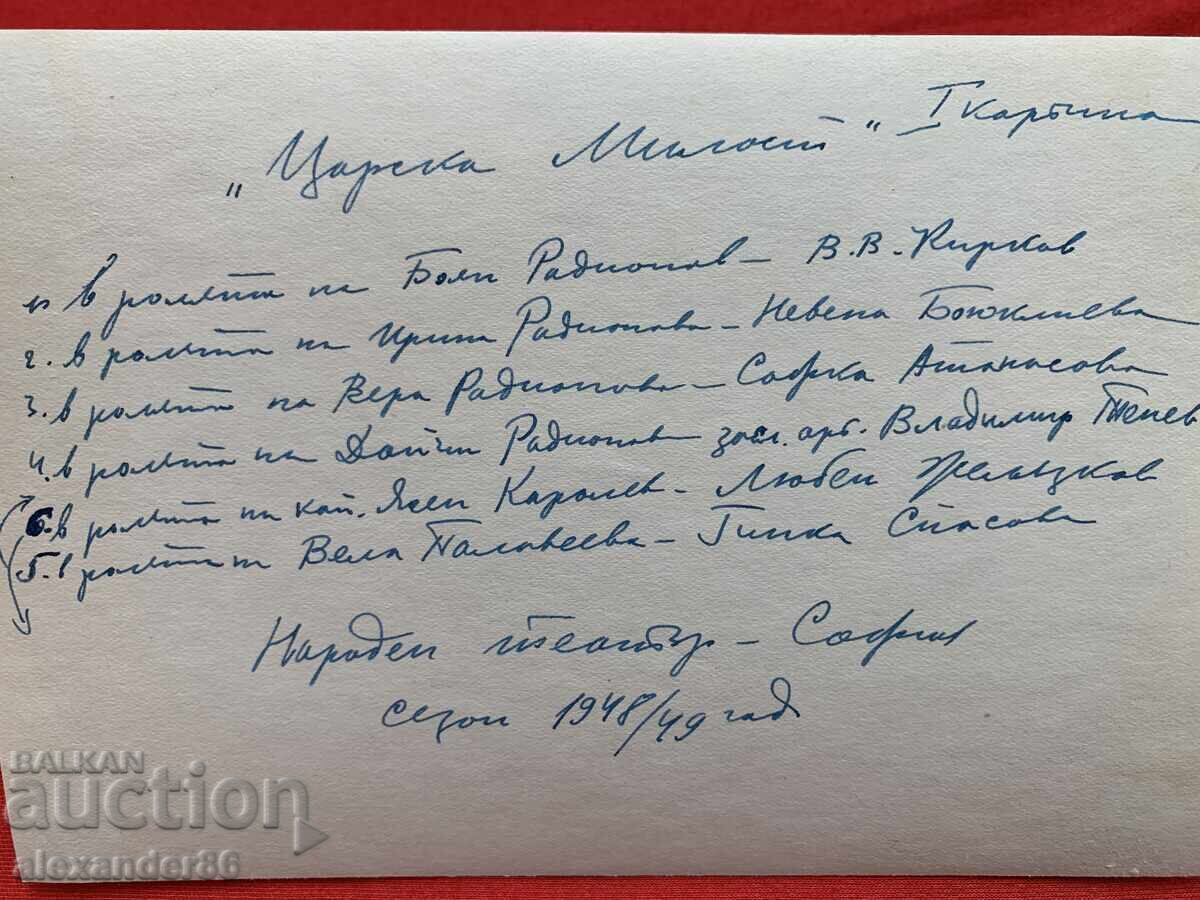 „Царска Милост“ I картина
1. в ролята на Боян Радионов – В.В. Кирков
2. в ролята на Ирина Радионова – Невена Бокжлиева
3. в ролята на Вера Радионова – Софка Атанасова
4. в ролята на Дойчин Радионов засл. арт. Владимир Тенев
6. в ролята на кап. Ясен Каролев – Любен Желязков
5. в ролята на Вела Палавеева – Гинка Спасова
Народен театър – София
сезон 1948/49 год
BALKAN
auction
alexander86